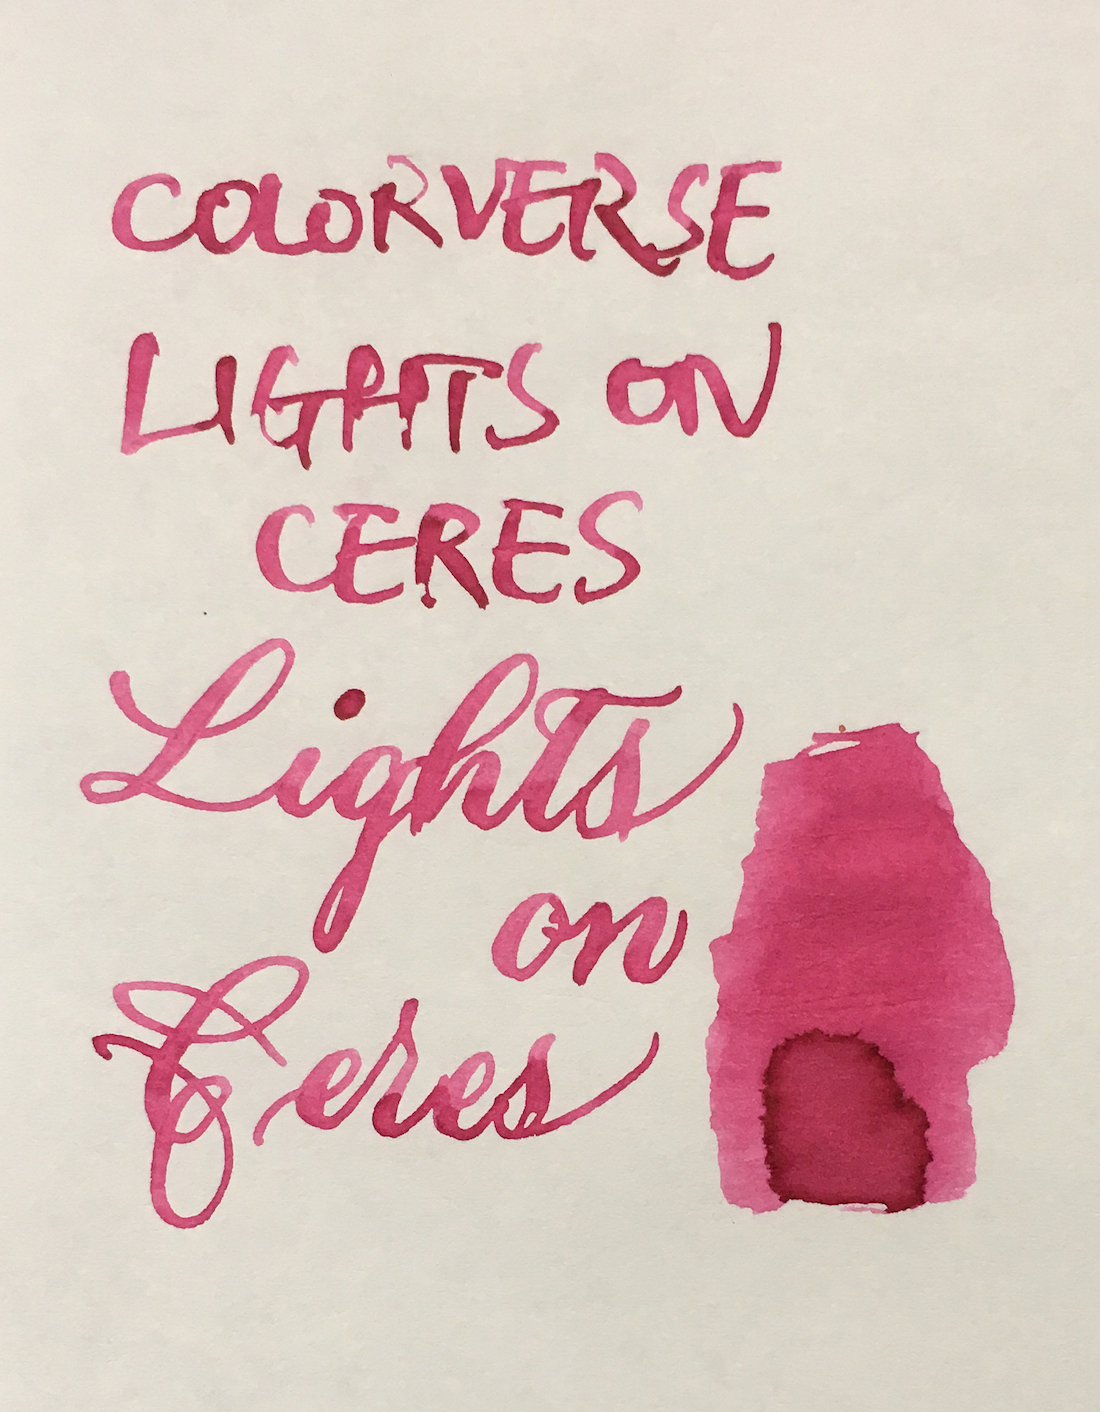 COLORVERSE
LIGHTS ON
CERES
Lights
on
Ceres